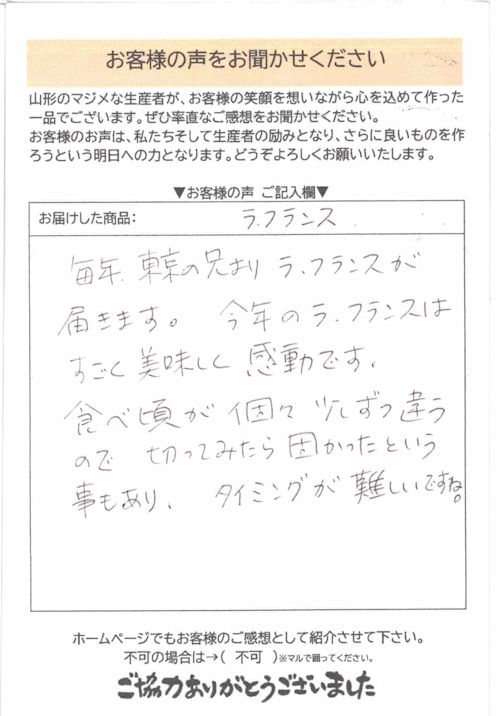 お客様の声をお聞かせください
山形のマジメな生産者が、お客様の笑顔を想いながら心を込めて作った
一品でございます。ぜひ率直なご感想をお聞かせください。
お客様のお声は、私たちそして生産者の励みとなり、さらに良いものを作
ろうという明日への力となります。どうぞよろしくお願いいたします。
▼お客様の声 ご記入欄▼
お届けした商品： ラ.フランス
毎年、東京の兄より ラ.フランスが
届きます。 今年のラ.フランスは
すごく美味しく 感動です、
食べ頃が 個々 少しずつ違う
ので 切ってみたら固かったという
事もあり、 タイミングが難しいですね。
ホームページでもお客様のご感想として紹介させて下さい。
不可の場合は→( 不可 )※マルで囲ってください。
ご協力ありがとうございました